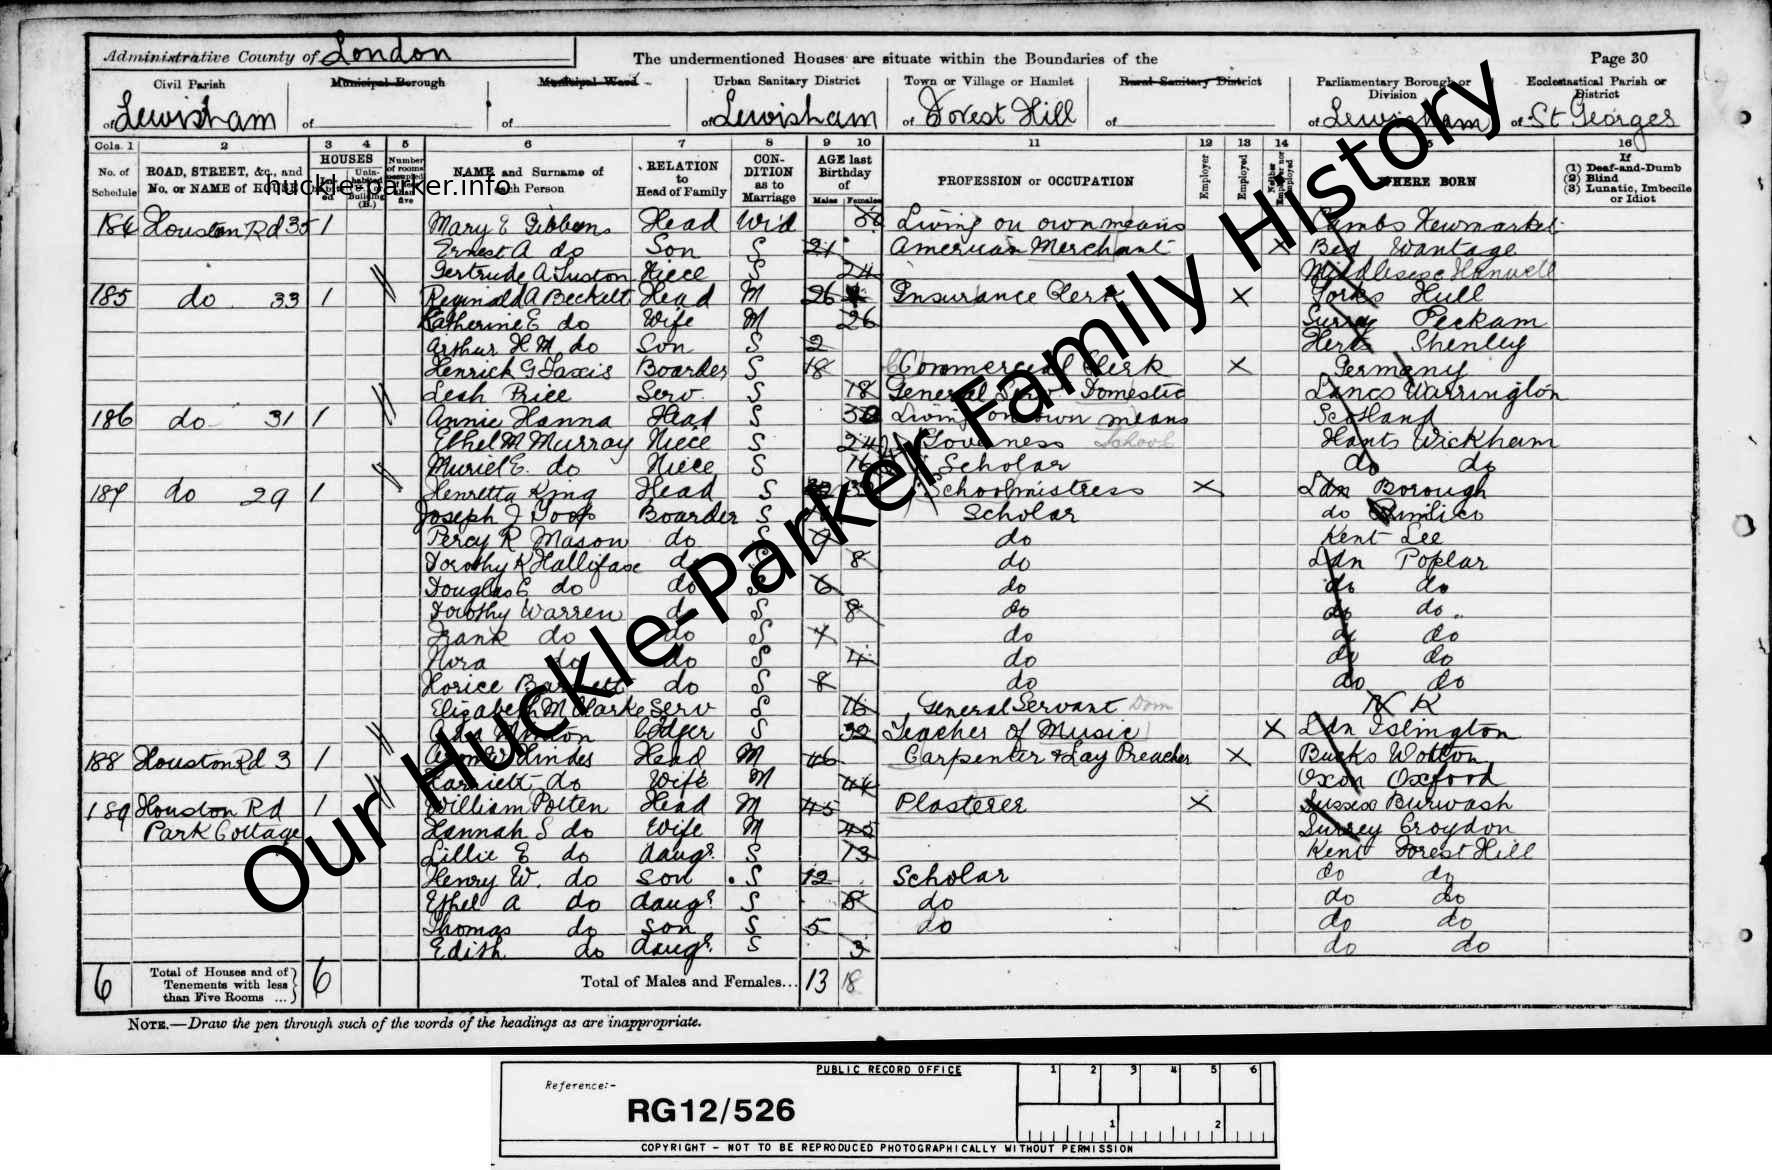 Administrative County of London
The undermentioned Houses are situate within the Boundaries of the
Page 30
Civil Parish
Municipal Borough
Municipal Ward
Urban Sanitary District
Town or Village or Hamlet
Rural Sanitary District
Parliamentary Borough or Division
Ecclesiastical Parish or District
of Lewisham of of of Lewisham of Forest Hill of of Lewisham of St Georges
Cols. 1 2 3 4 5 6 7 8 9 10 11 12 13 14 16
No. of Schedule
ROAD, STREET, &c., and No. or NAME of
HOUSES
Number of rooms
NAME and Surname of each Person
RELATION to Head of Family
CONDITION as to Marriage
AGE last Birthday of
Males Females
PROFESSION or OCCUPATION
Employer
Employed
WHERE BORN
If (1) Deaf-and-Dumb (2) Blind (3) Lunatic, Imbecile or Idiot
huckle-parker.info
Our Huckle-Parker Family History
186 Houston Rd 35 1 Mary E Gibbons Head Wid Living on own means Cambs Newmarket
Ernest A do Son S 21 American Merchant X Wantage
Gertrude A Niece S 24 Middlesex Hanwell
185 do 33 1 Reginald A Beckett Head M 26 Insurance Clerk X Yorks Hull
Katherine E do Wife M 26 Surrey Peckam
Arthur H M do Son S 2 Herts Shenley
Henrick G Boarder S 18 Commercial Clerk X Germany
Leah Price Serv S 18 General Serv Domestic Lancs Warrington
186 do 31 1 Annie Hanna Head S Living on own means Scotland
Ethel M Murray Niece S 24 Governess School Hants Wickham
Muriel E. do Niece S 16 Scholar do do
187 do 29 1 Henretta King Head S Schoolmistress X Ldn Borough
Joseph J Boarder S Scholar do Pimlico
Percy R Mason do S 9 do Kent Lee
Dorothy K Hallifax do S 8 do Ldn Poplar
Douglas E do do S 6 do do do
Dorothy Warren do S 8 do do do
Frank do do S 7 do do do
Nora do do S 4 do do do
Horice Barnett do S 8 do do do
Elizabeth M Clarke Serv S 16 General Servant Dom N K
S 32 Teacher of Music X Ldn Islington
188 Houston Rd 3 1 Hindes Head M 46 Carpenter & Lay Preacher X Bucks Wotton
Harriett do Wife M 44 Oxon Oxford
189 Houston Rd 1 William Potten Head M 45 Plasterer X Sussex Burwash
Park Cottage Hannah S do Wife M 45 Surrey Croydon
Lillie E do daugr S 13 Kent Forest Hill
Henry W. do son S 12 Scholar do do
Ethel A do daugr S 8 do do do
Thomas do son S 5 do do do
Edith do daugr S 3 do do
6 Total of Houses and of Tenements with less than Five Rooms ... 6 Total of Males and Females... 13 18
NOTE.—Draw the pen through such of the words of the headings as are inappropriate.
PUBLIC RECORD OFFICE
1 2 3 4 5 6
Reference:-
RG12/526
1 2
COPYRIGHT - NOT TO BE REPRODUCED PHOTOGRAPHICALLY WITHOUT PERMISSION